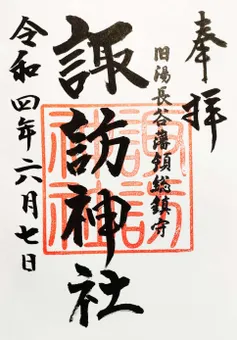 奉拝
旧湯長谷藩領総鎮守
諏訪神社
令和四年六月七日
諏訪神社